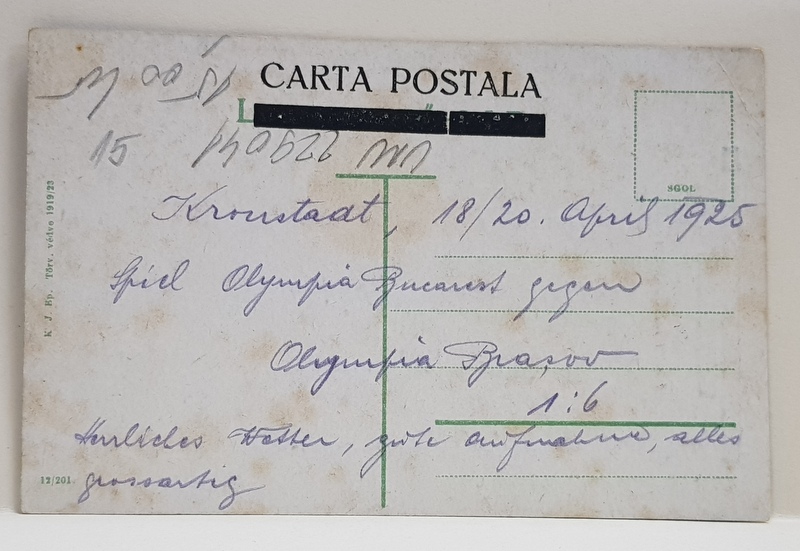 CARTA POSTALA
L
15
229041
SGOL
K. J. Bp. Törv. védve 1919/23
Kronstadt, 18/20. April 1925
Spiel Olympia Bucarest gegen
Olympia Brașov
1:6
Herrliches Wetter, gute Aufnahme, alles
grossartig
12/201.